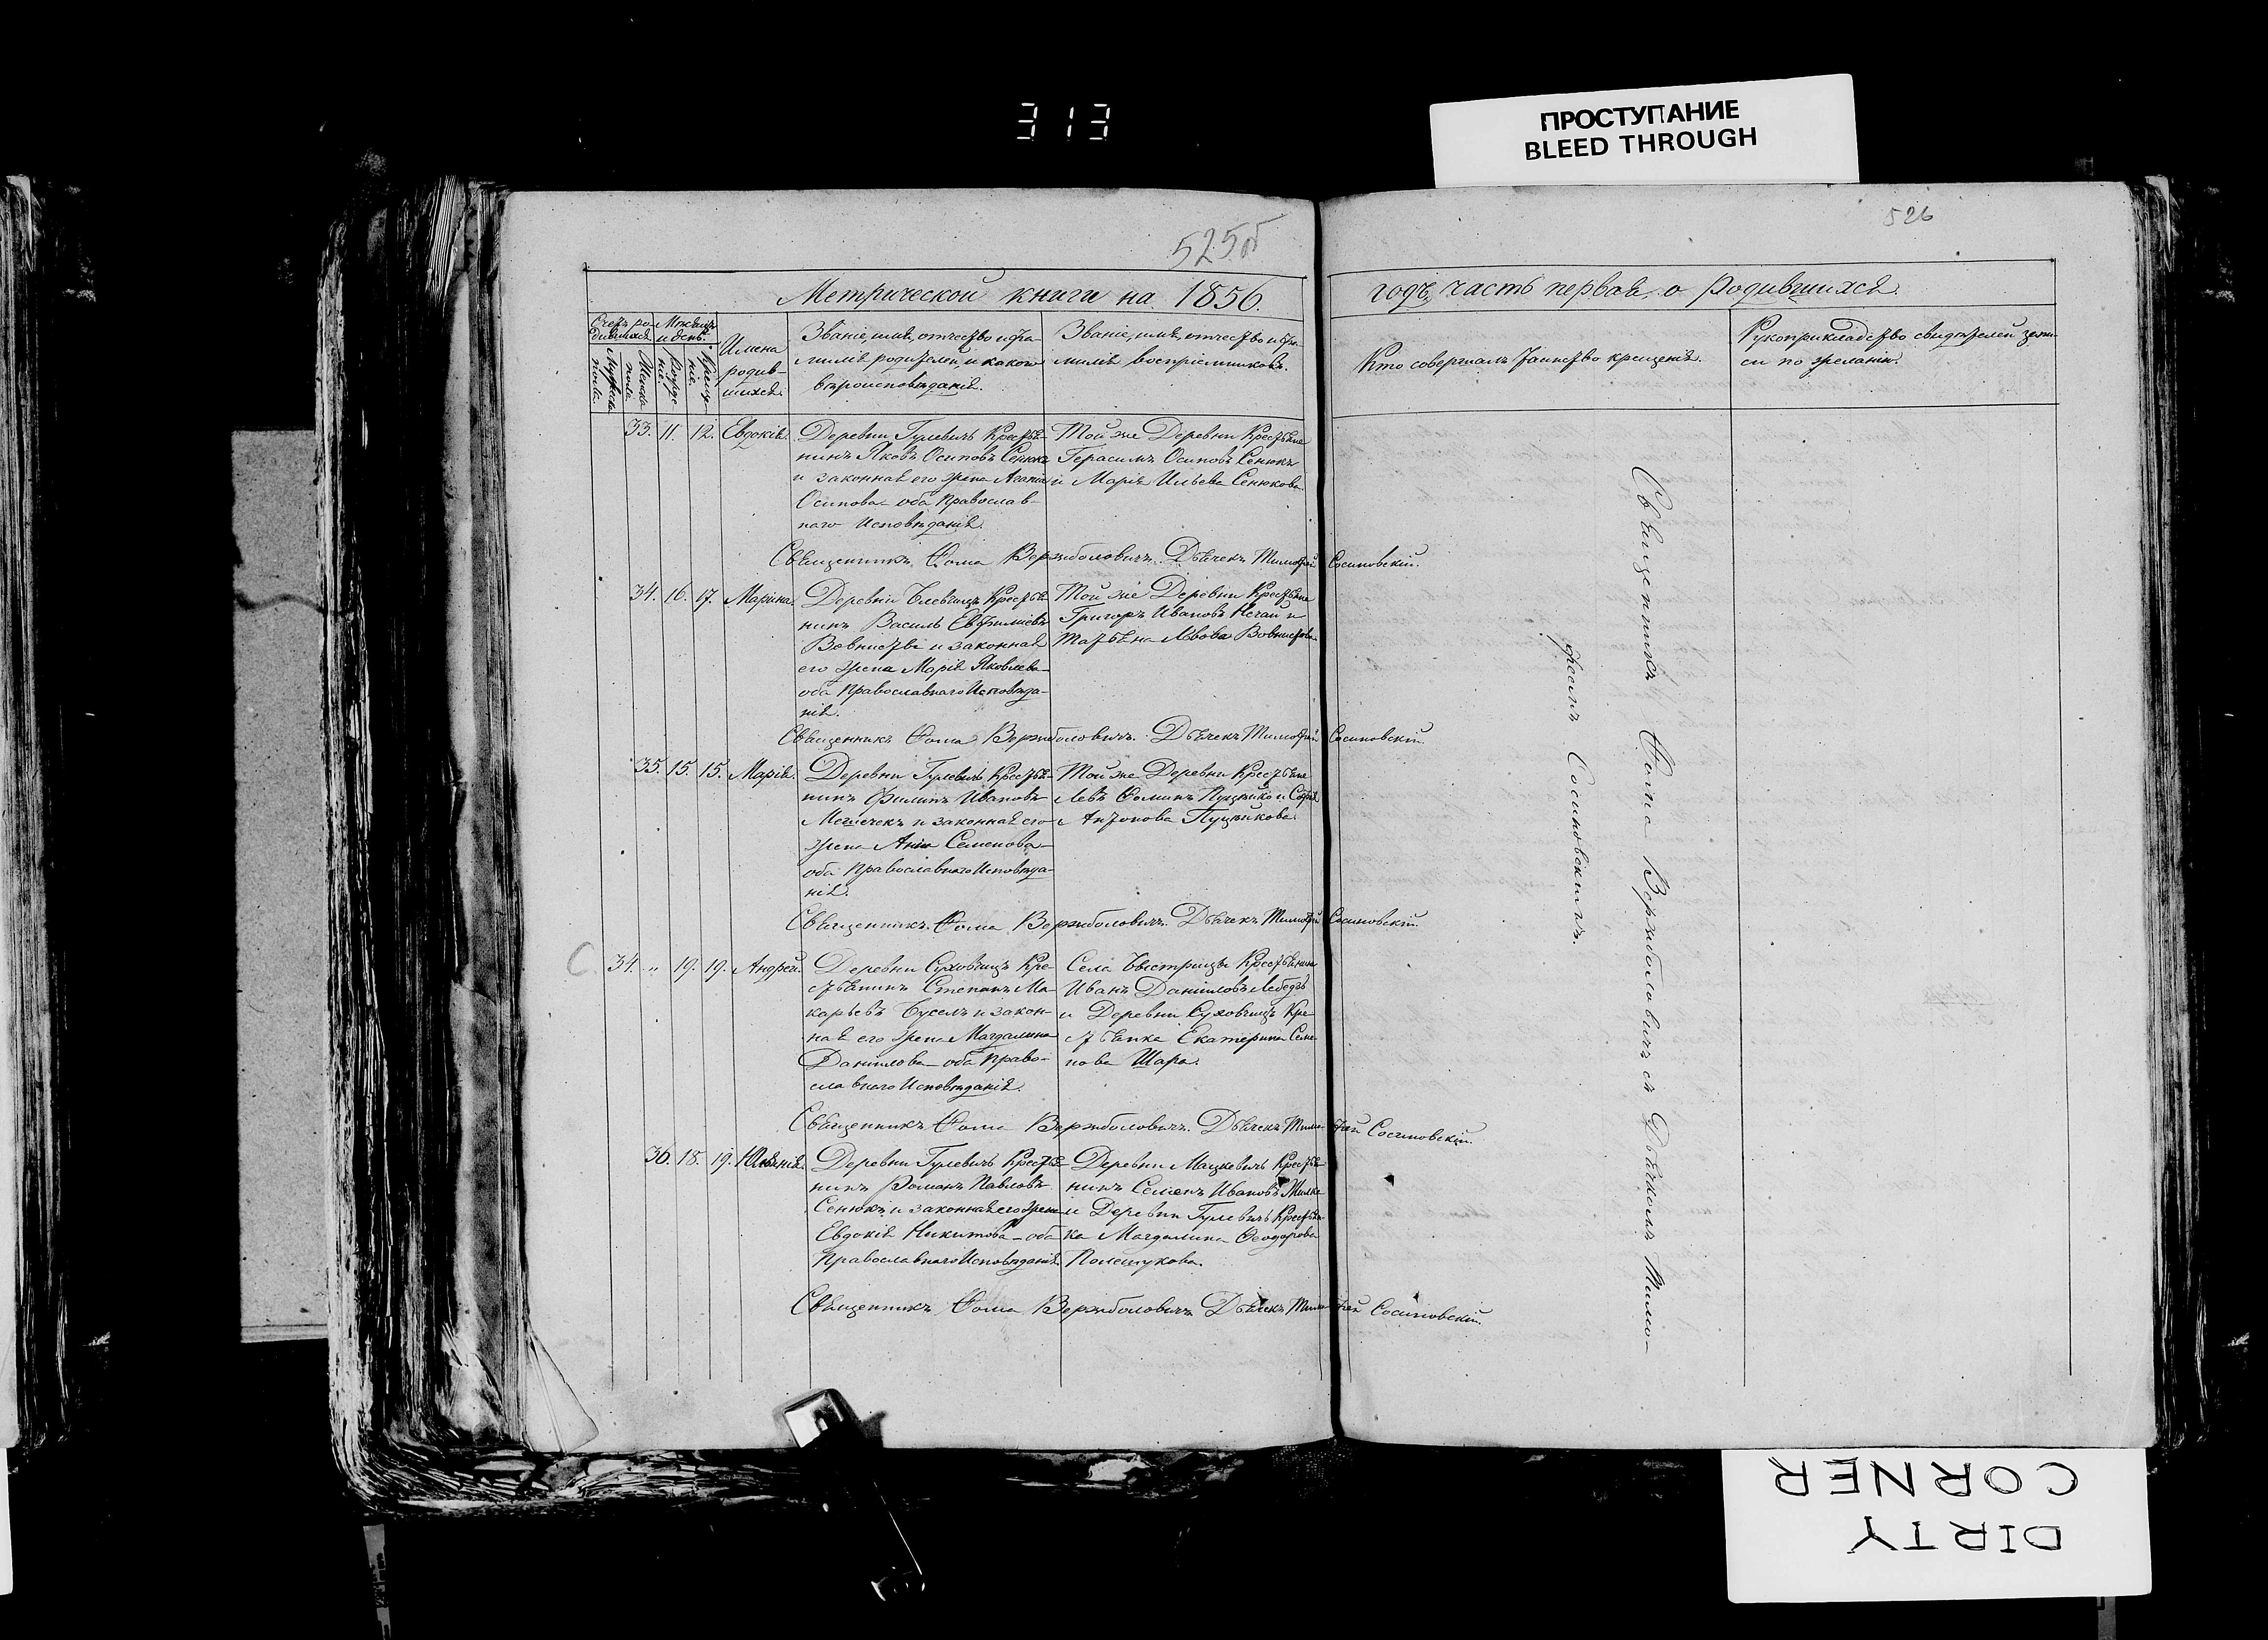 313
ПРОСТУПАНИЕ
BLEED THROUGH
525об
526
Метрической книги на 1856.
годъ, часть первая, о родившихся.
Счетъ ро-
дившихся
Мужеска
пола.
Женска
пола
Мѣсяцъ
и день.
Рожде-
ніе.
Креще-
ніе.
Имена
родив-
шихся.
Званіе, имя, отчество и фа-
милія родителей, и какого
вѣроисповѣданія.
Званіе, имя, отчество и фа-
милія воспріемниковъ.
Кто совершалъ таинство крещенія.
Рукоприкладство свидѣтелей запи-
си по желанію.
33. 11. 12. Евдокія.
Деревни Гулевичъ Крестья-
нинъ Яковъ Осиповъ Сенюкъ
и законная его жена Агапія
Осипова оба Православ-
наго Исповѣданія.
Той же Деревни Крестьяне
Герасимъ Осиповъ Сенюкъ
и Марія Ильева Сенюкова.
Священникъ Фома Вержболовичъ. Дьячекъ Тимофей Сосиновскій.
34. 16. 17. Марина.
Деревни Крестья
нинъ Василь Евфиміевъ
и законная
его жена Марія Яковлева
оба Православнаго Исповѣда-
нія.
Той же Деревни Крестьяне
Григоръ Ивановъ Нечай и
Татьяна Львова
Священникъ Фома Вержболовичъ. Дьячекъ Тимофей Сосиновскій.
35. 15. 15. Марія.
Деревни Гулевичъ Крестья-
нинъ Филипъ Ивановъ
и законная его
жена Анна Семенова
оба Православнаго Исповѣда-
нія.
Той же Деревни Крестьяне
Левъ Фоминъ и Софія
Антонова
Священникъ Фома Вержболовичъ. Дьячекъ Тимофей Сосиновскій.
34. " 19. 19. Андрей.
Деревни Суховчицъ Кре-
стьянинъ Степанъ Ма-
карьевъ Буселъ и закон-
ная его жена Магдалина
Данилова оба Право-
славнаго Исповѣданія.
Села Быстрицы Крестьянинъ
Иванъ Даниловъ Лебедь
и Деревни Суховчицъ Кре-
стьянка Екатерина Семе-
нова Шара.
Священникъ Фома Вержболовичъ. Дьячекъ Тимофей Сосиновскій.
36. 18. 19. Юліянія.
Деревни Гулевичъ Крестья-
нинъ Романъ Павловъ
Сенюкъ и законная его жена
Евдокія Никитова оба
Православнаго Исповѣданія.
Деревни Мацкевичъ Крестья-
нинъ Семенъ Ивановъ
и Деревни Гулевичъ Крестьян-
ка Магдалина Феодорова
Полещукова.
Священникъ Фома Вержболовичъ Дьячекъ Тимофей Сосиновскій.
Священникъ Фома Вержболовичъ съ Дьячкомъ Тимо-
феемъ Сосиновскимъ.
DIRTY
CORNER